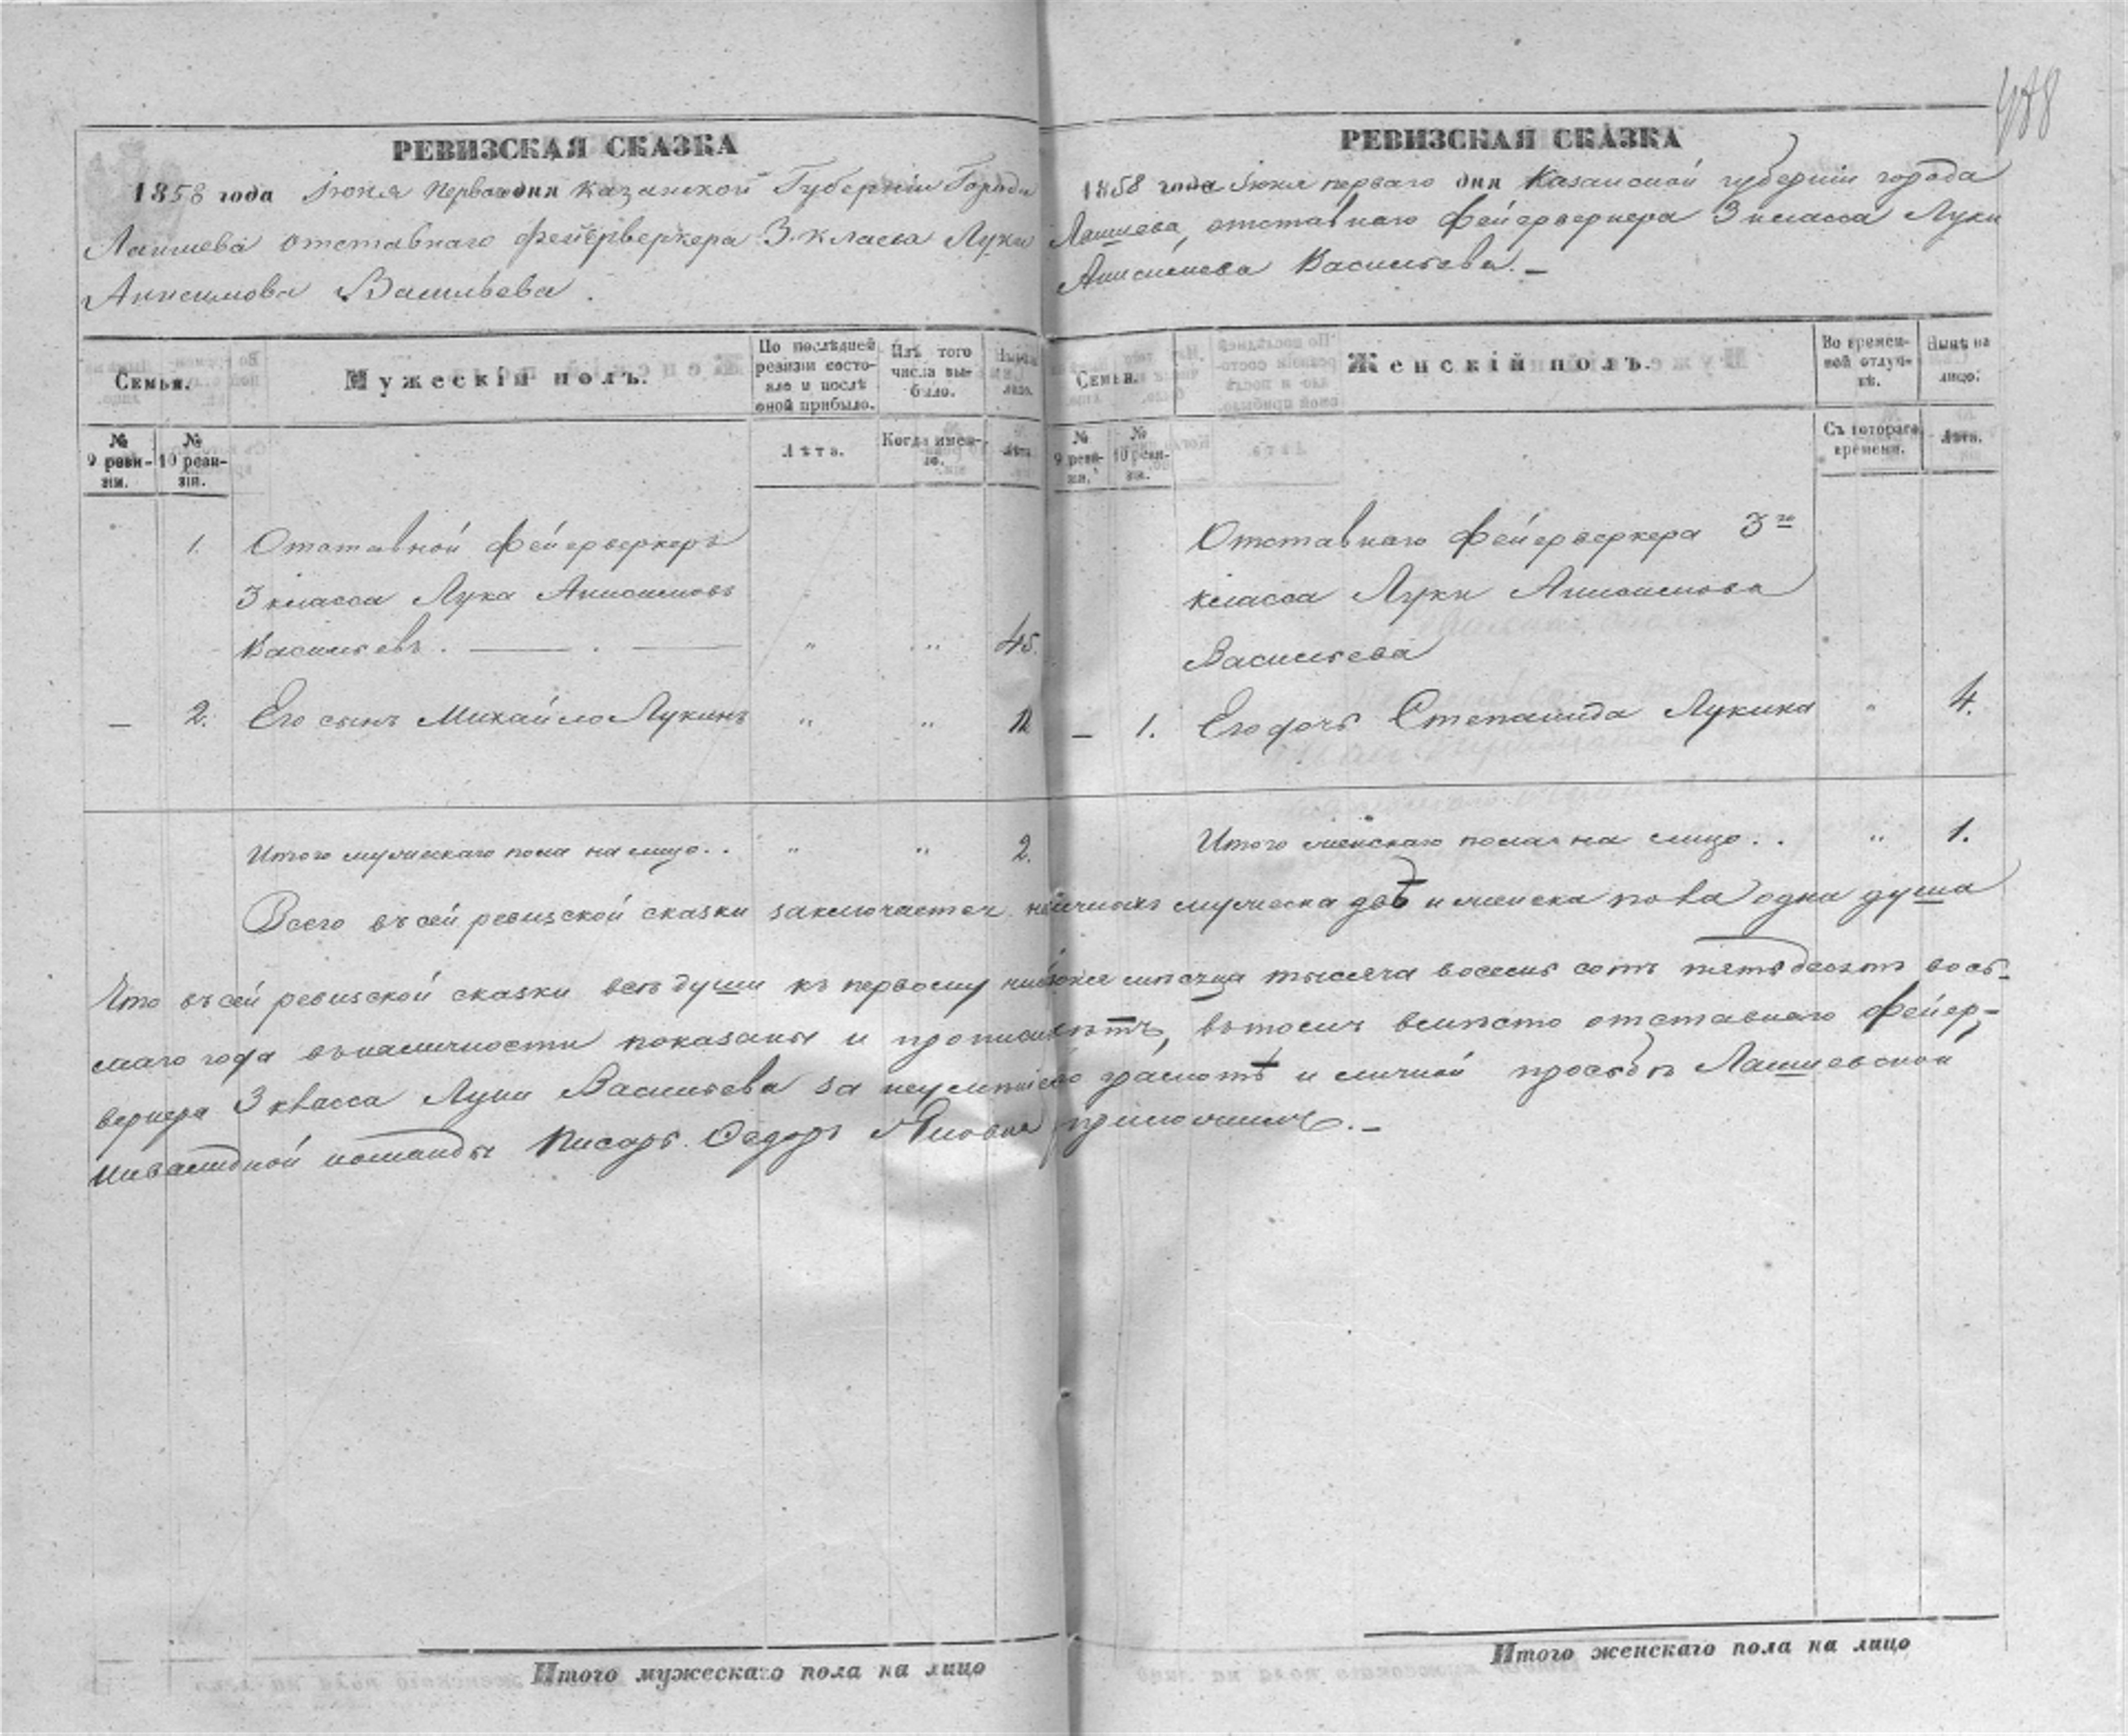 РЕВИЗСКАЯ СКАЗКА
1858 года Іюня Перваго дня Казанской Губерніи Города
Лаишева отставнаго фейерверкера 3. класса Луки
Анисимова Васильева.
Семьи.
Мужескій полъ.
По послѣдней
ревизіи состо-
яло и послѣ
оной прибыло.
Изъ того
числа вы-
было.
Нынѣ на
лицо.
№
9 реви-
зіи.
№
10 реви-
зіи.
Лѣта.
Когда имен-
но.
Лѣта.
1. Отставной фейерверкеръ
3 класса Лука Анисимовъ
Васильевъ. " " 45.
— 2. Его сынъ Михайло Лукинъ " " 12
Итого мужескаго пола на лицо.. " " 2.
РЕВИЗСКАЯ СКАЗКА
1858 года Іюня перваго дня Казанской губерніи города
Лаишева, отставнаго фейерверкера 3 класса Луки
Анисимова Васильева.—
Семьи.
Женскій полъ.
Во времен-
ной отлуч-
кѣ.
Нынѣ на
лицо.
№
9 реви-
зіи.
№
10 реви-
зіи.
Съ котораго
времени.
Лѣта.
Отставнаго фейерверкера 3го
класса Луки Анисимова
Васильева
— 1. Его дочь Степанида Лукина " 4.
Итого женскаго пола на лицо.. " 1.
Всего въ сей ревизской сказки заключается мужеска двѣ и женска пола одна душа
Что въ сей ревизской сказки всѣ души къ первому число іюня мѣсяца тысяча восемь сотъ пятьдесятъ вось-
маго года въ наличности показаны и прописныхъ нѣтъ, въ томъ вмѣсто отставнаго фейер-
веркера 3 класса Луки Васильева за неумѣніемъ грамотѣ и личной просьбѣ Лаишевской
инвалидной команды Писарь Федоръ приложилъ.—
Итого мужескаго пола на лицо
Итого женскаго пола на лицо